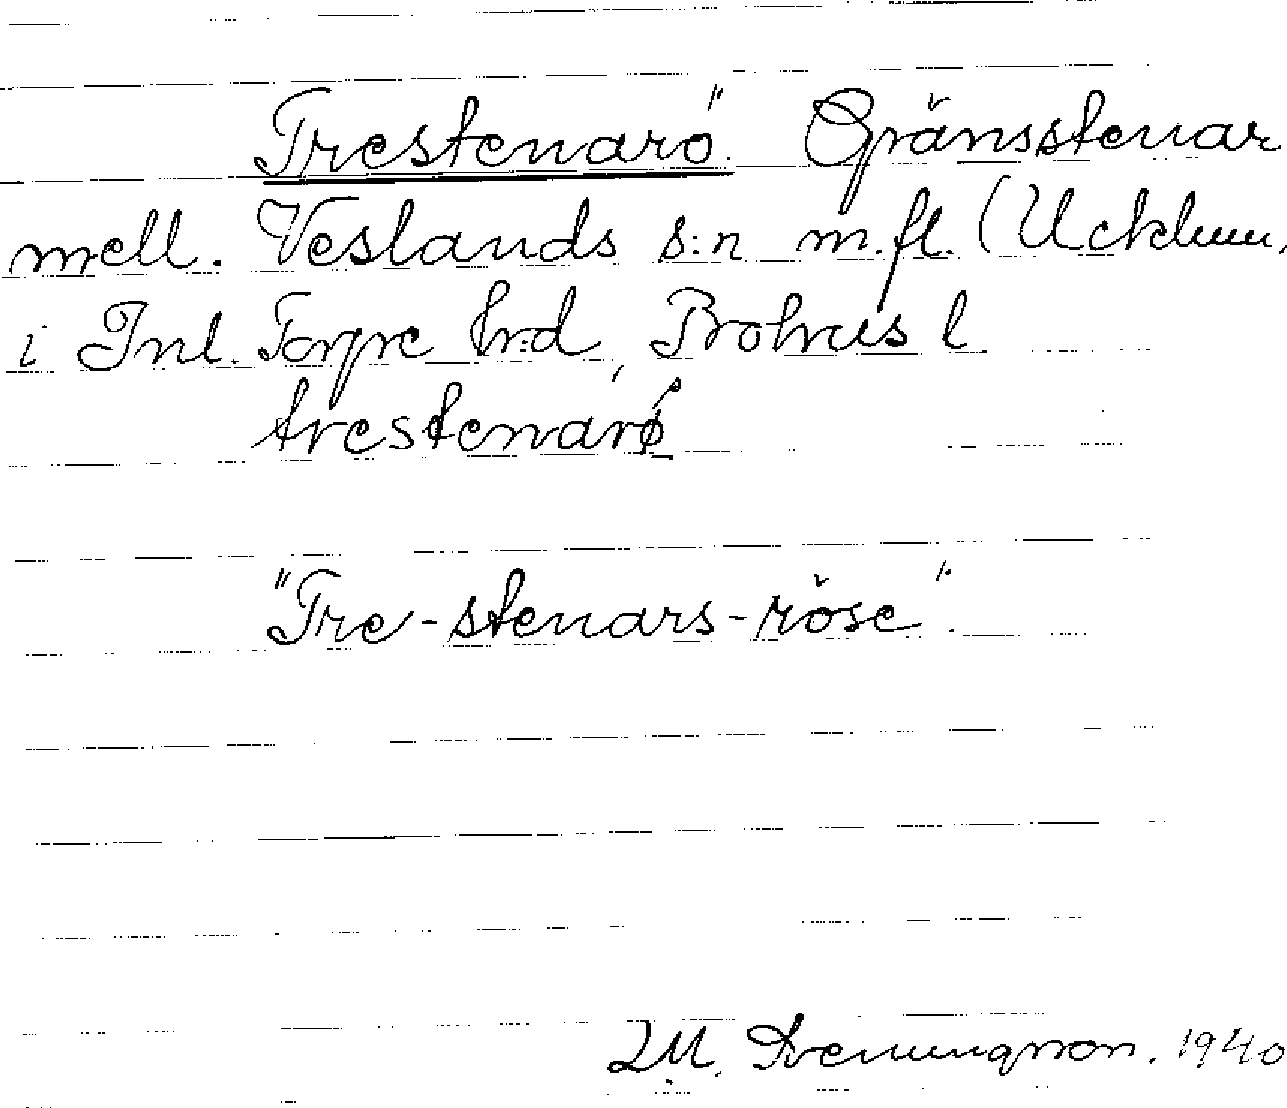 Trestenarö" Gränsstenar
mell. Veslands s:n m.fl. (Ucklum,
i Inl. Torpe hrd, Bohus l
trestenarø
"Tre-stenars-röse".
1940